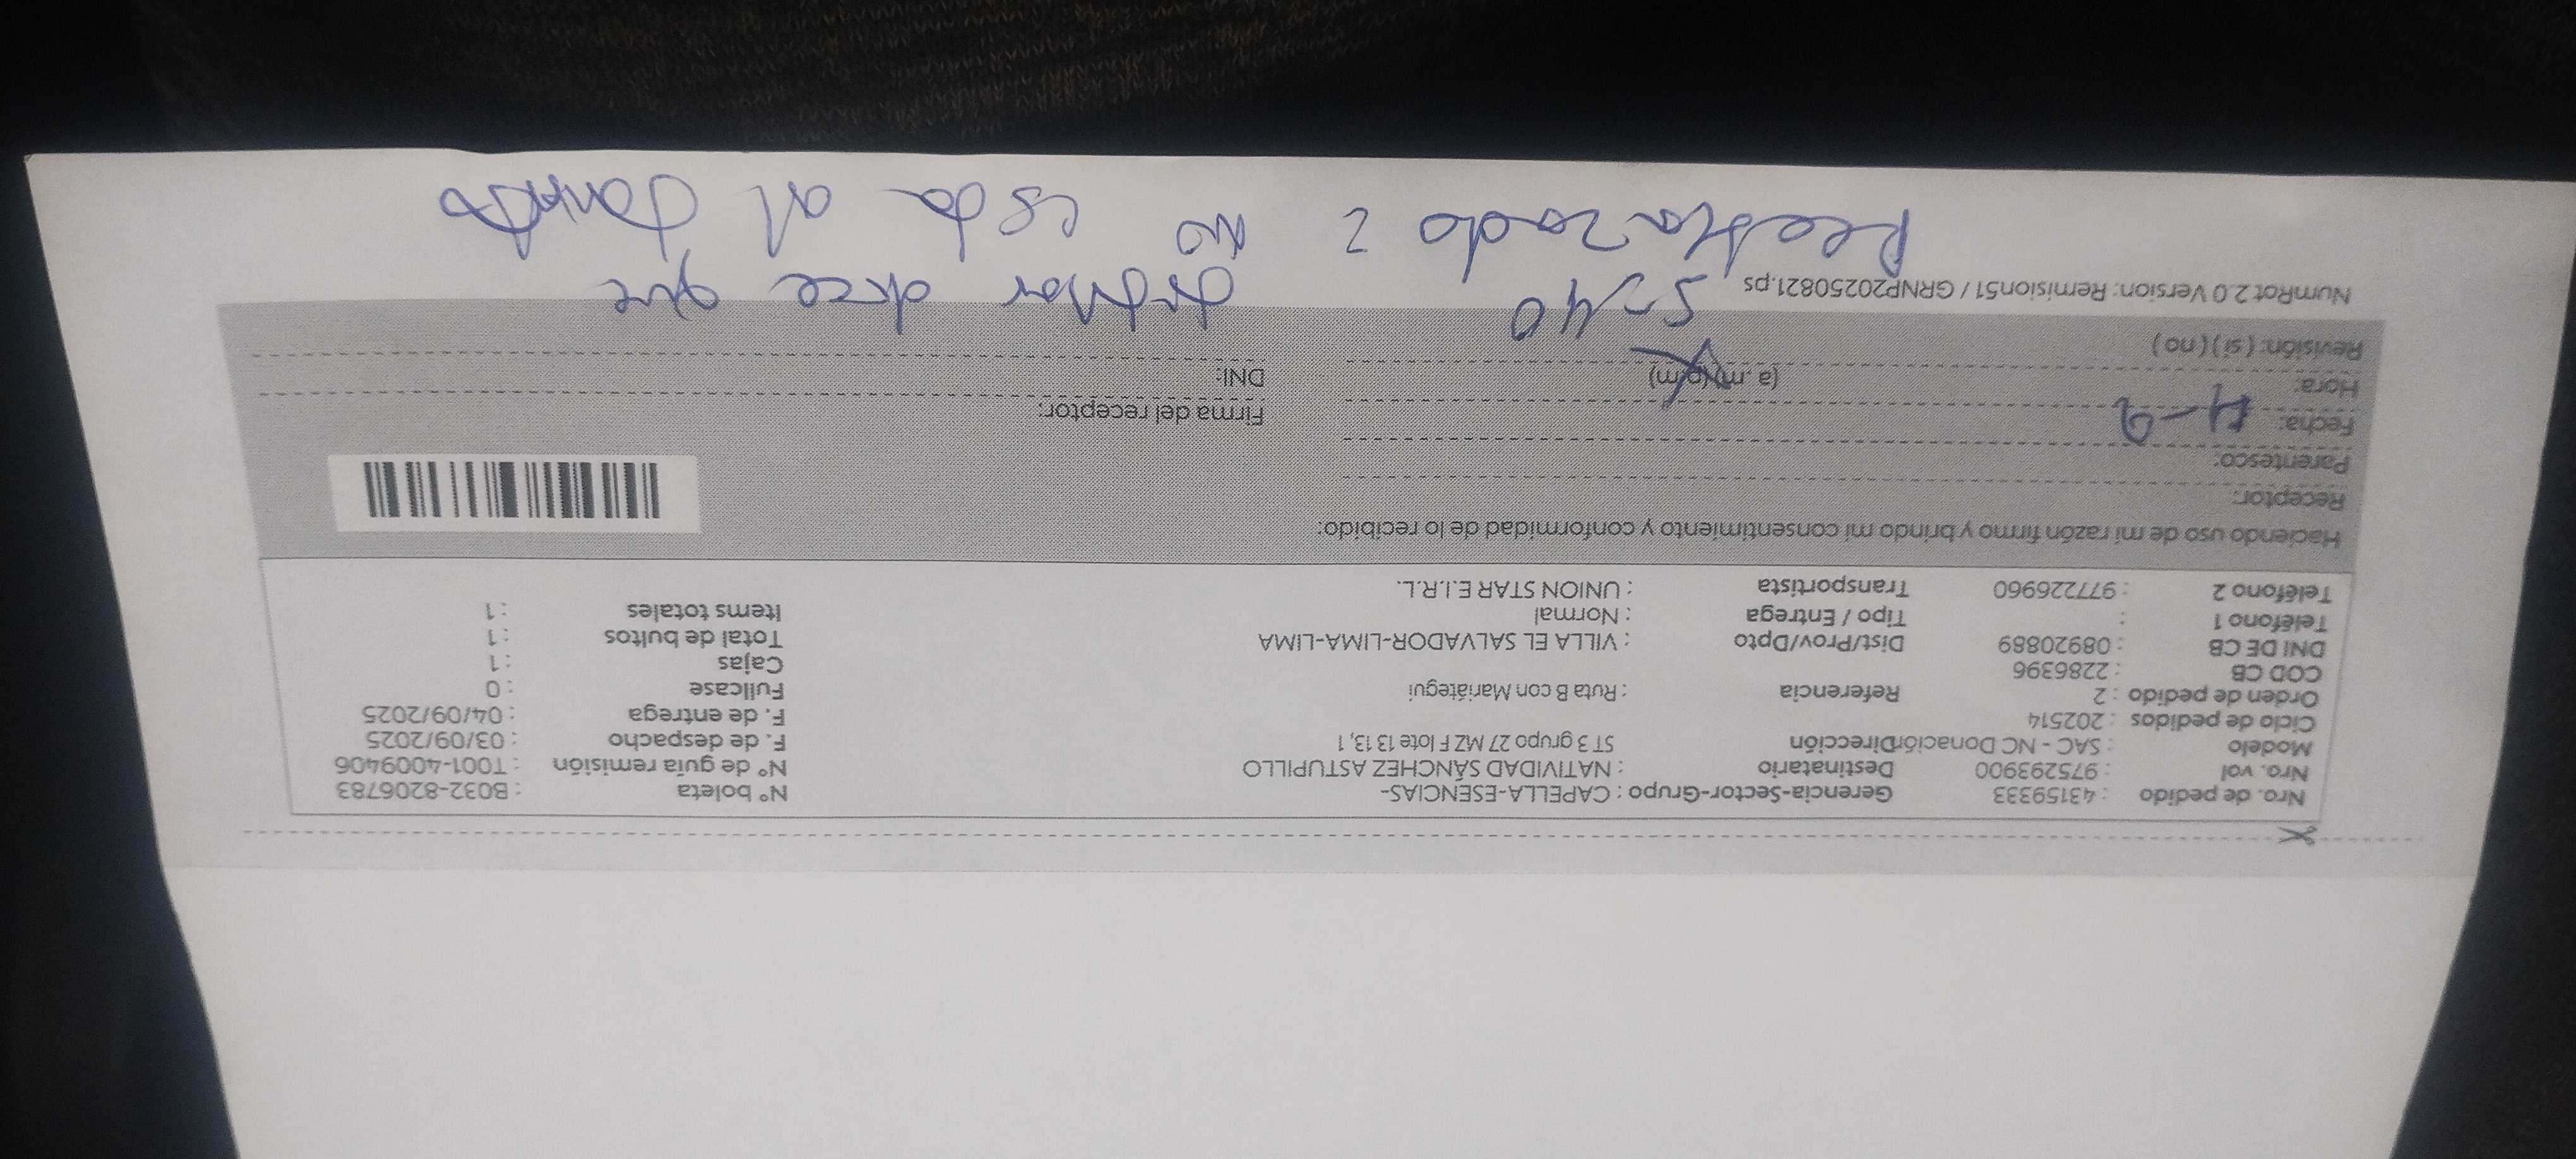 Nro. de pedido : 43159333 Gerencia-Sector-Grupo : CAPELLA-ESENCIAS- N° boleta : B032-8206783
Nro. vol : 975293900 Destinatario : NATIVIDAD SÁNCHEZ ASTUPILLO N° de guía remisión : T001-4009406
Modelo : SAC - NC Donación Dirección ST 3 grupo 27 MZ F lote 13 13, 1 F. de despacho : 03/09/2025
Ciclo de pedidos : 202514 F. de entrega : 04/09/2025
Orden de pedido : 2 Referencia : Ruta B con Mariátegui Fullcase : 0
COD CB : 2286396 Cajas : 1
DNI DE CB : 08920889 Dist/Prov/Dpto : VILLA EL SALVADOR-LIMA-LIMA Total de bultos : 1
Teléfono 1 : Tipo / Entrega : Normal Items totales : 1
Teléfono 2 : 977226960 Transportista : UNION STAR E.I.R.L.
Haciendo uso de mi razón firmo y brindo mi consentimiento y conformidad de lo recibido:
Receptor:
Parentesco:
Fecha: 4-9 Firma del receptor:
Hora: (a .m) (p.m) DNI:
Revisión: ( si ) ( no )
5:40 dice que
NumRot 2.0 Version: Remision51 / GRNP20250821.ps
no esta al